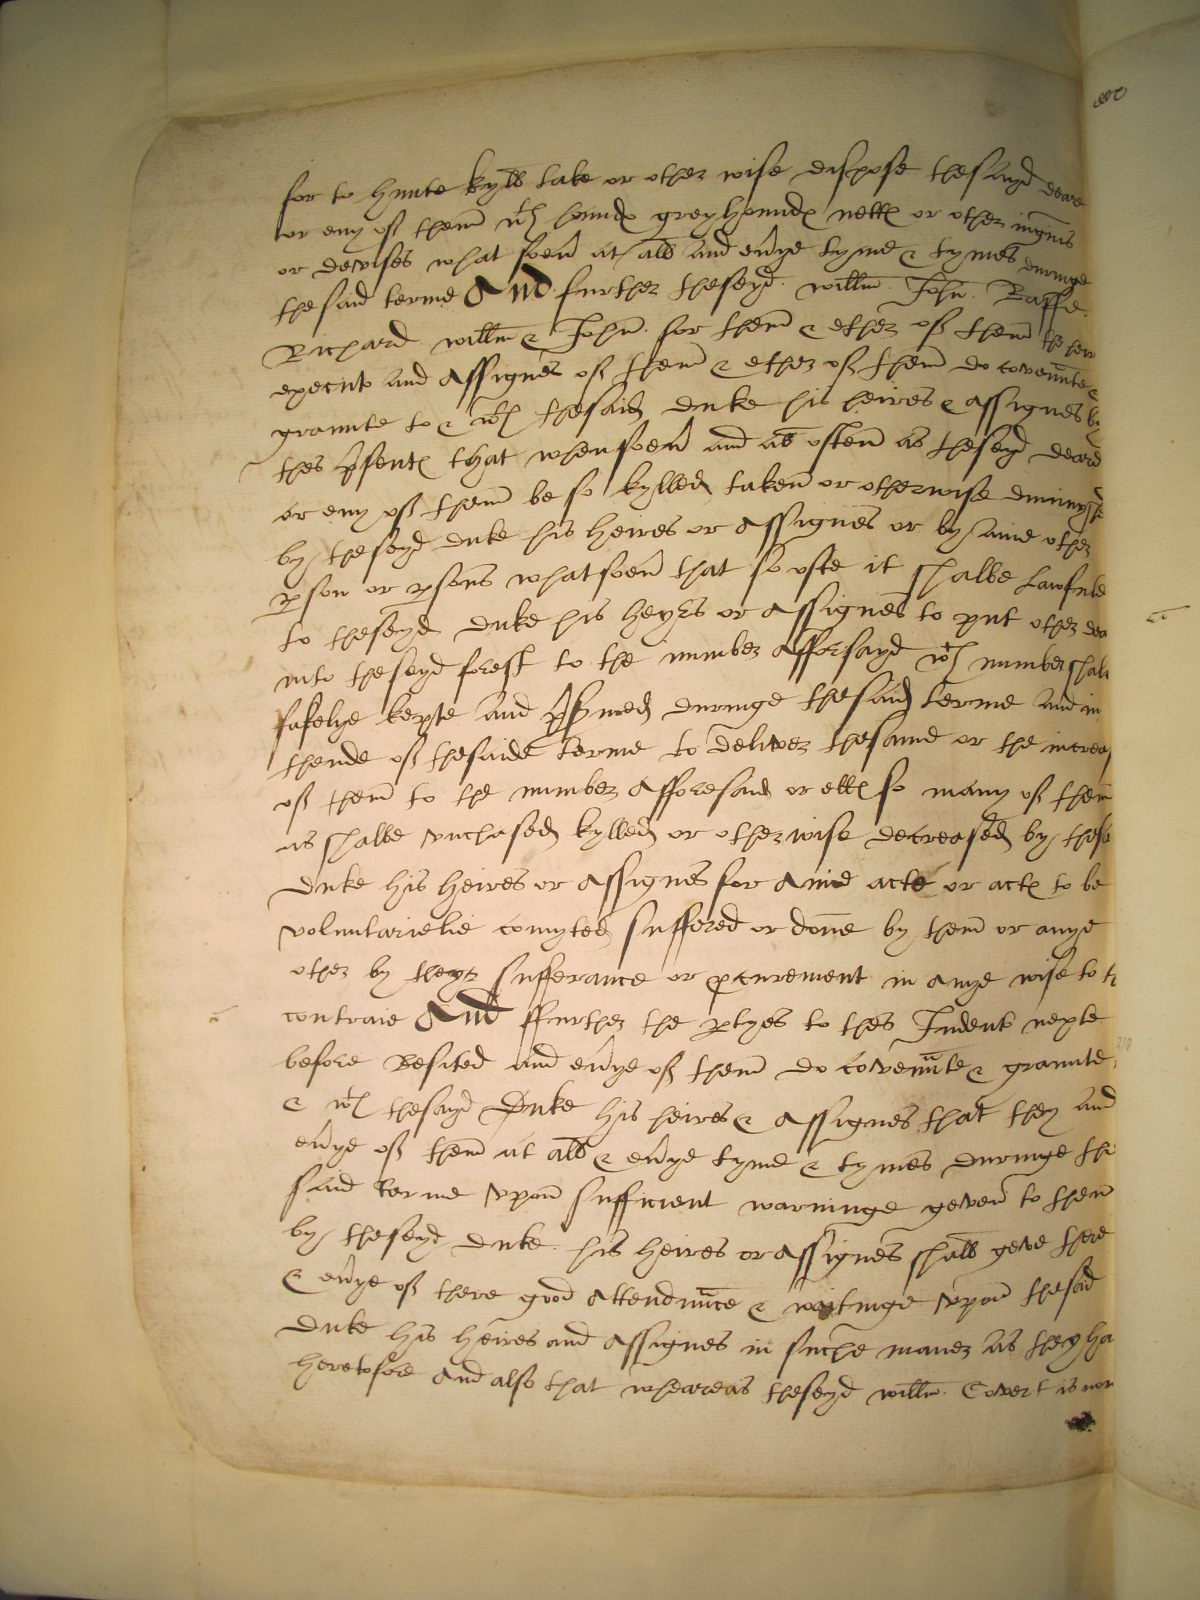 for to hunte kyll take or other wise dispose thesayd deare
or eny of them wth houndes greyhoundes nettes or other ingins
or devises what soever at all and evrye tyme & tymes duringe
thesaid terme And further theseyd willm John Raffe
Richard willm & John for them & ether of them the heir
executo and Assignes of them & ether of them do covennte &
graunte to & wth thesaid duke his heires & assignes by
thes psentes that whensoevr and as often as theseyd deare
or eny of them be so kylled taken or otherwise diminys
by theseyd duke his heires or assignes or by anie other
pson or psons whatsoevr that so ofte it shalbe Lawfull
to theseyd duke his heyrs or assignes to put other dea
into theseyd forest to the number afforsayd wch number shalb
safelye kepte and psrued duringe thesaid terme and in
thende of thesaide terme to deliver thesame or the increas
of them to the number afforesaid or elles so many of them
as shalbe vnchased kylled or otherwise decreased by these
Duke his heires or assignes for anie acte or actes to be
voluntarielie comyted suffered or done by them or anye
other by theyr sufferance or pcurement in anye wise to t
contraie And ffurther the ptyes to thes Indent nexte
before Resited and evrye of them do covennte & graunte
& wth thesayd Duke his heires & assignes that they and
evrye of them at all & evrye tyme & tymes duringe the
said terme vpon sufficient warninge geven to them
by theseyd duke his heires or assignes shall geve there
& evrye of there good attendnnce & waitinge vpon thesad
Duke his heires and assignes in suche maner as they ha
heretofore And also that wheareas theseyd willm Covert is now